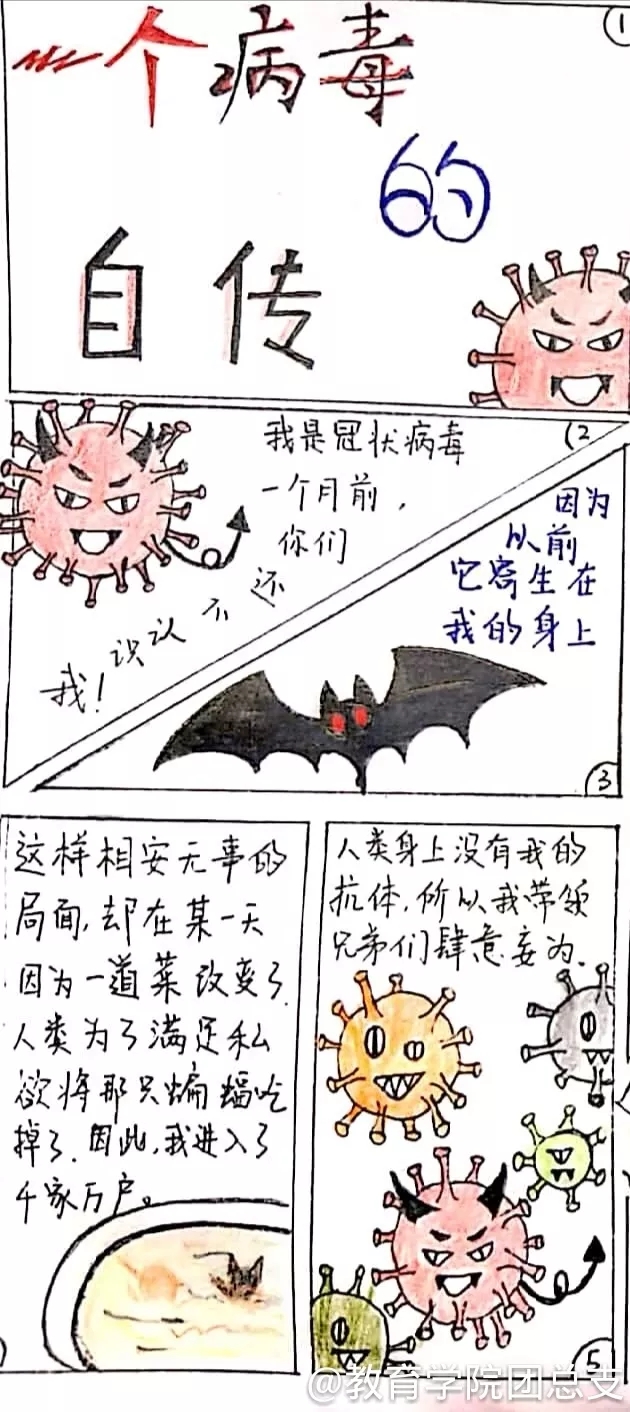 ①
一个病毒
的
自传
②
我是冠状病毒
一个月前，
你们
还不认识
我！
因为
以前
它寄生在
我的身上
③
这样相安无事的
局面，却在某一天
因为一道菜改变了.
人类为了满足私
欲将那只蝙蝠吃
掉了.因此,我进入了
千家万户。
人类身上没有我的
抗体,所以我带领
兄弟们肆意妄为.
⑤
@教育学院团总支